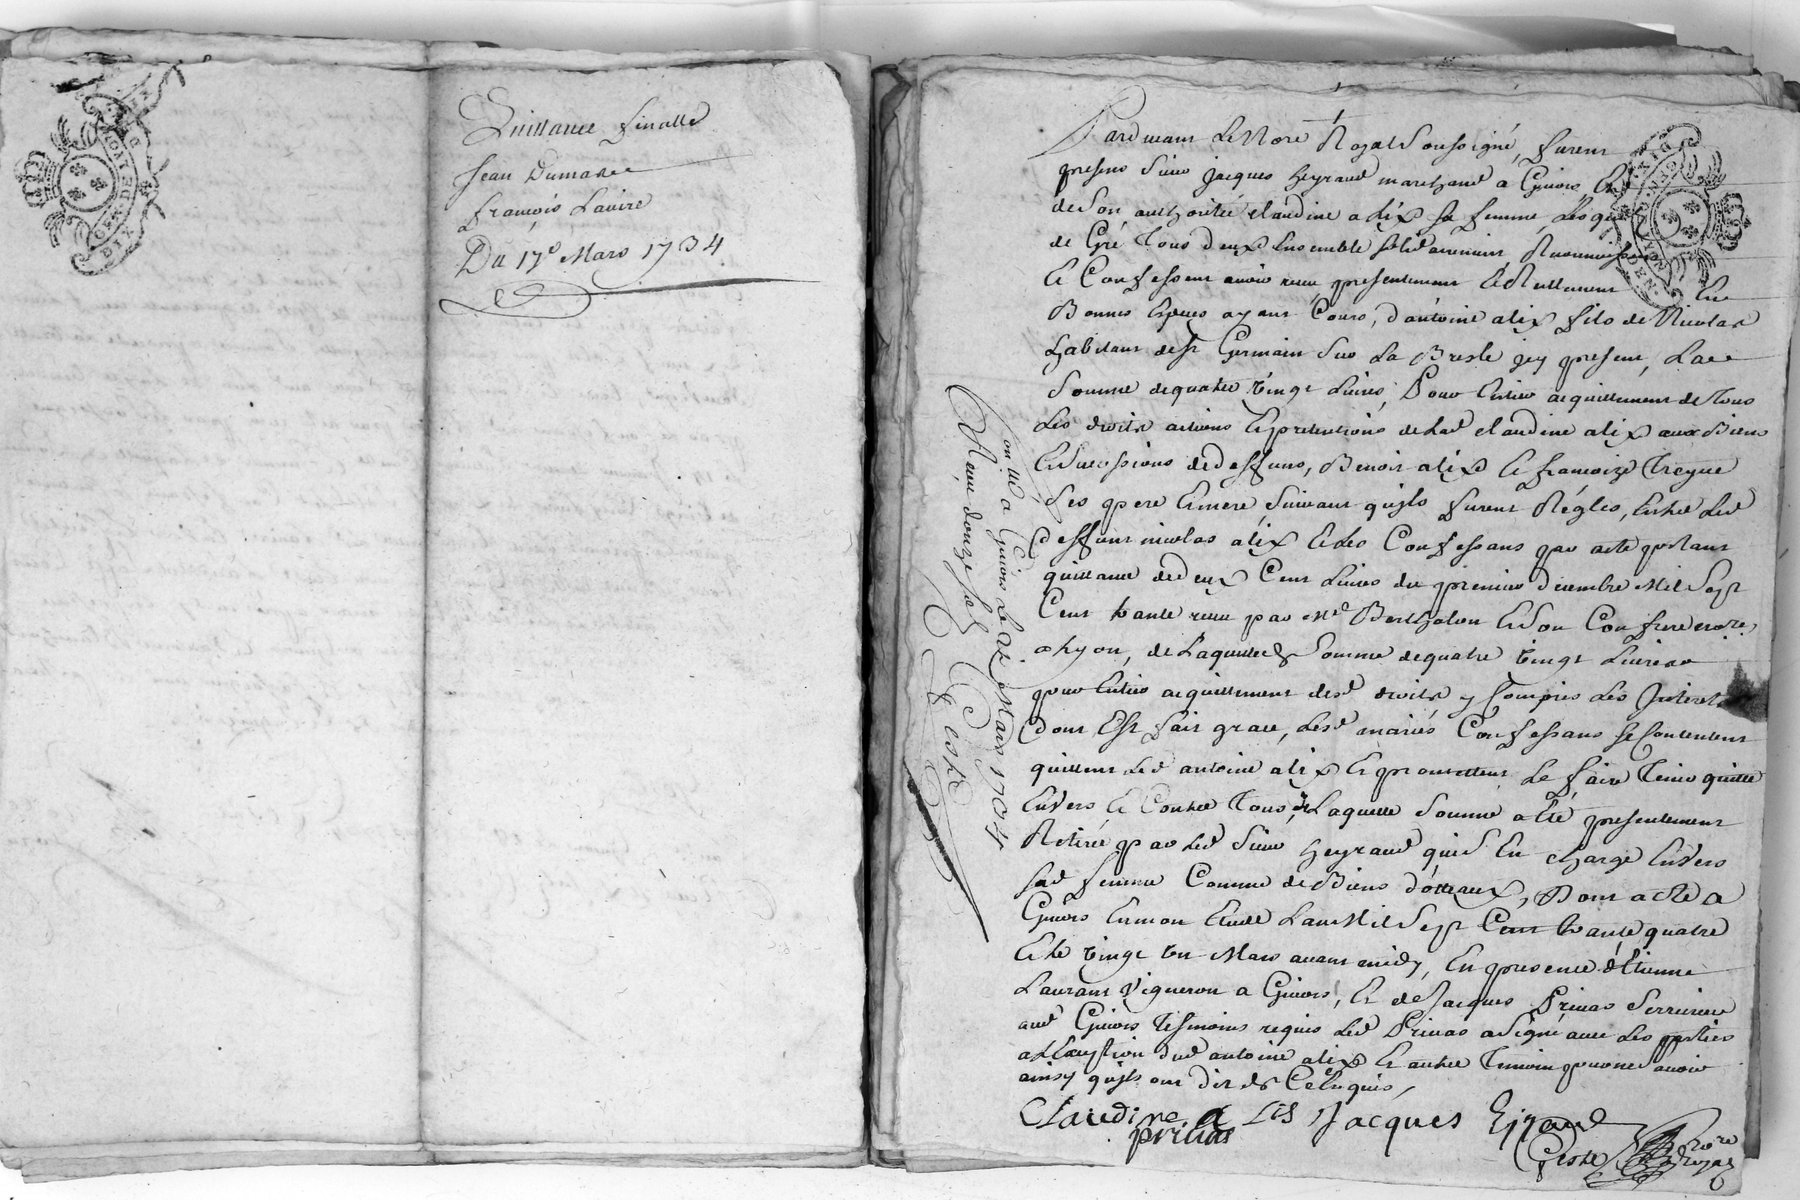 Quittance finalle
Jean Dumas
françois Lavire
Du 17e Mars 1734
Pardevant Le Nore Royal Soussigné, furent
presens Sieur jacques heyraud marchand a Givors Et
de Son authoritée claudine alix sa femme, Lesquels
de Gré Tous deux Ensemble solidairement Reconnoissent
Et Confessent avoir receu presentement Et Reellement En
Bonnes Especes ayant Cours, d'antoine alix fils de Nicolas
habitant de st Germain Sur La Bresle jcy present, La
Somme de quatre vingt Livres, Pour Entier acquittement de Tous
Les droits actions Et pretentions de lad claudine alix aux Biens
Et Successions de deffuns, Benoit alix Et francoize Treyve
Ses pere Et mere, Suivant quils furent Réglés, Entre Led
deffunt nicolas alix Et Les Confessans par acte portant
quittance de deux Cent Livres du premier decembre Mil Sept
Cent trante receu par Me Berthelon Et Son Confrere nores
a Lyon, de Laquelle Somme de quatre vingt Livres
pour Entier acquittement desd droits y Compris Les Interets
dont Est fait grace, Lesd mariés Confessans se Contentent
quittent Led antoine alix Et promettent Le faire Tenir quitte
Envers Et Contre Tous, Laquelle Somme a Eté presentement
Retirée par Led Sieur heyraud qui S En charge Envers
sad femme Comme de Biens dotteaux, Dont acte a
Givors En mon Etude L'an Mil Sept Cent trante quatre
Et Le vingt Un Mars avant midy, En presence d'Etienne
Laurant vigneron a Givors, Et de Jacques Privas Serrurier
aud Givors Tesmoins requis Led Privas a Signé avec Les parties
a L'exception dud antoine alix Et autre Temoin pour ne Savoir
ainsy quils ont dit de Ce Enquis,
Claudine a Lis Jacques Eiraud
privas
Nore
Royal
Con llé a Givors Le Mars 1734
Receu douze Sols